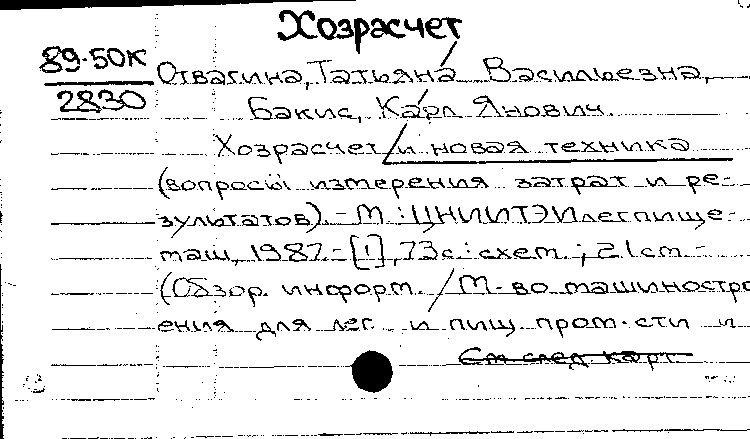 Хозрасчет
89-50К
2830
Отвагина, Татьяна Васильезна,
Бакис, Карл Янович.
Хозрасчет и новая техника
(вопросы измерения затрат и ре-
зультатов). - М.: ЦНИИТЭИлегпище-
маш, 1987. - [1], 73с.: схем.; 21см -
(Обзор. информ. / М-во машиностро
ения для лег. и пищ. пром-сти и
См след. карт.